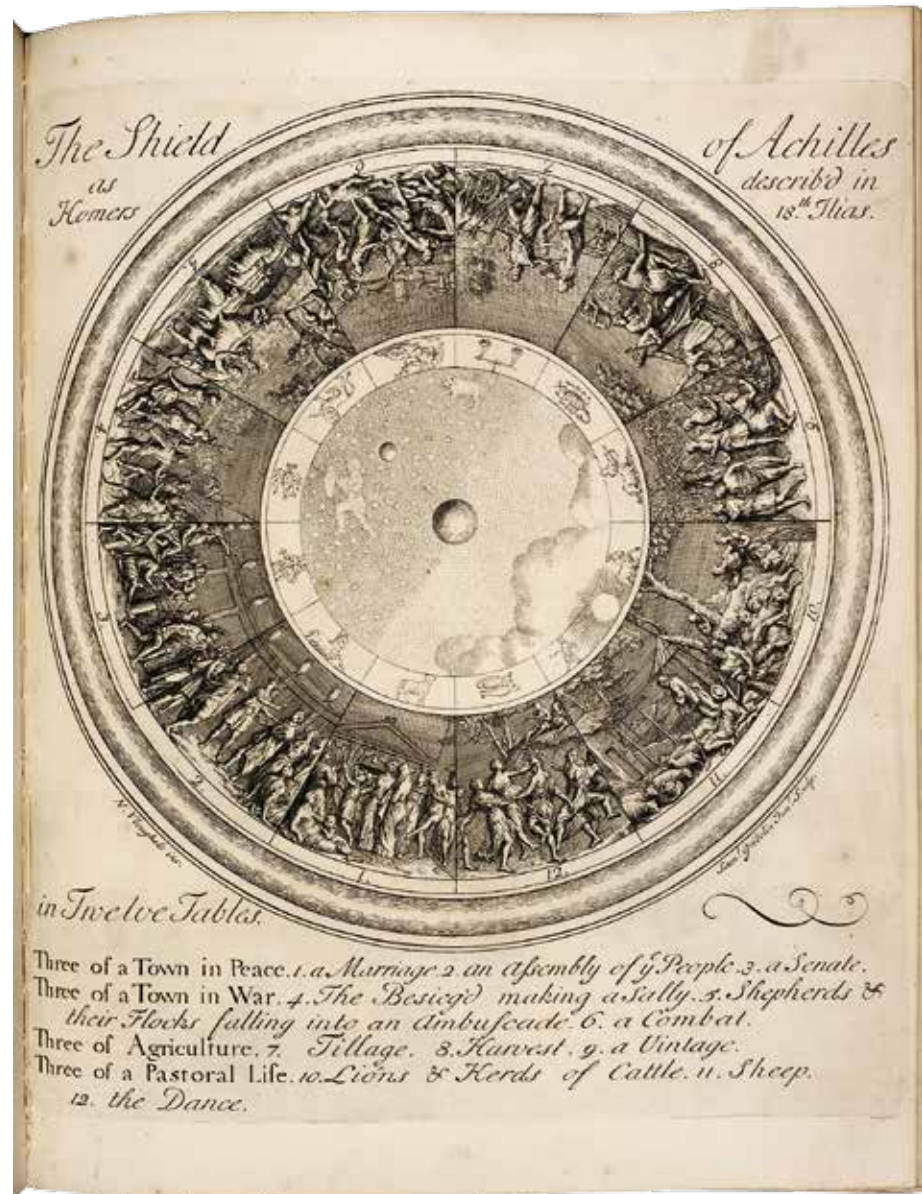 The Shield of Achilles
as describ'd in
Homers 18.th Ilias.
8
9
10.
11.
12.
1.
2
3
4
N. Vleughels inv.
Sam.l Gribelin Jun.r Sculp.
in Twelve Tables.
Three of a Town in Peace. 1. a Marriage 2 an Assembly of ẙ People. 3. a Senate.
Three of a Town in War. 4. The Besieg'd making a Sally. 5. Shepherds &
their Flocks falling into an Ambuscade. 6. a Combat.
Three of Agriculture. 7. Tillage. 8. Harvest. 9. a Vintage.
Three of a Pastoral Life. 10. Lions & Herds of Cattle. 11. Sheep.
12. the Dance.